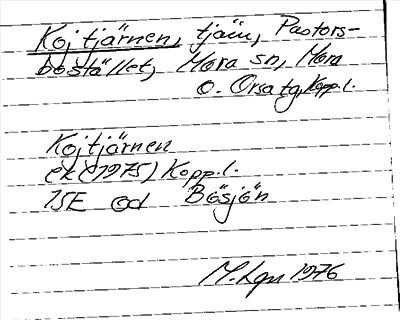 Kojtjärnen, tjärn, Pastors-
bostället, Mora sn, Mora
o. Orsa tg, Kopp.l.
Kojtjärnen
ek (1975) Kopp.l.
15E od Bösjön
M. Lgn 1976